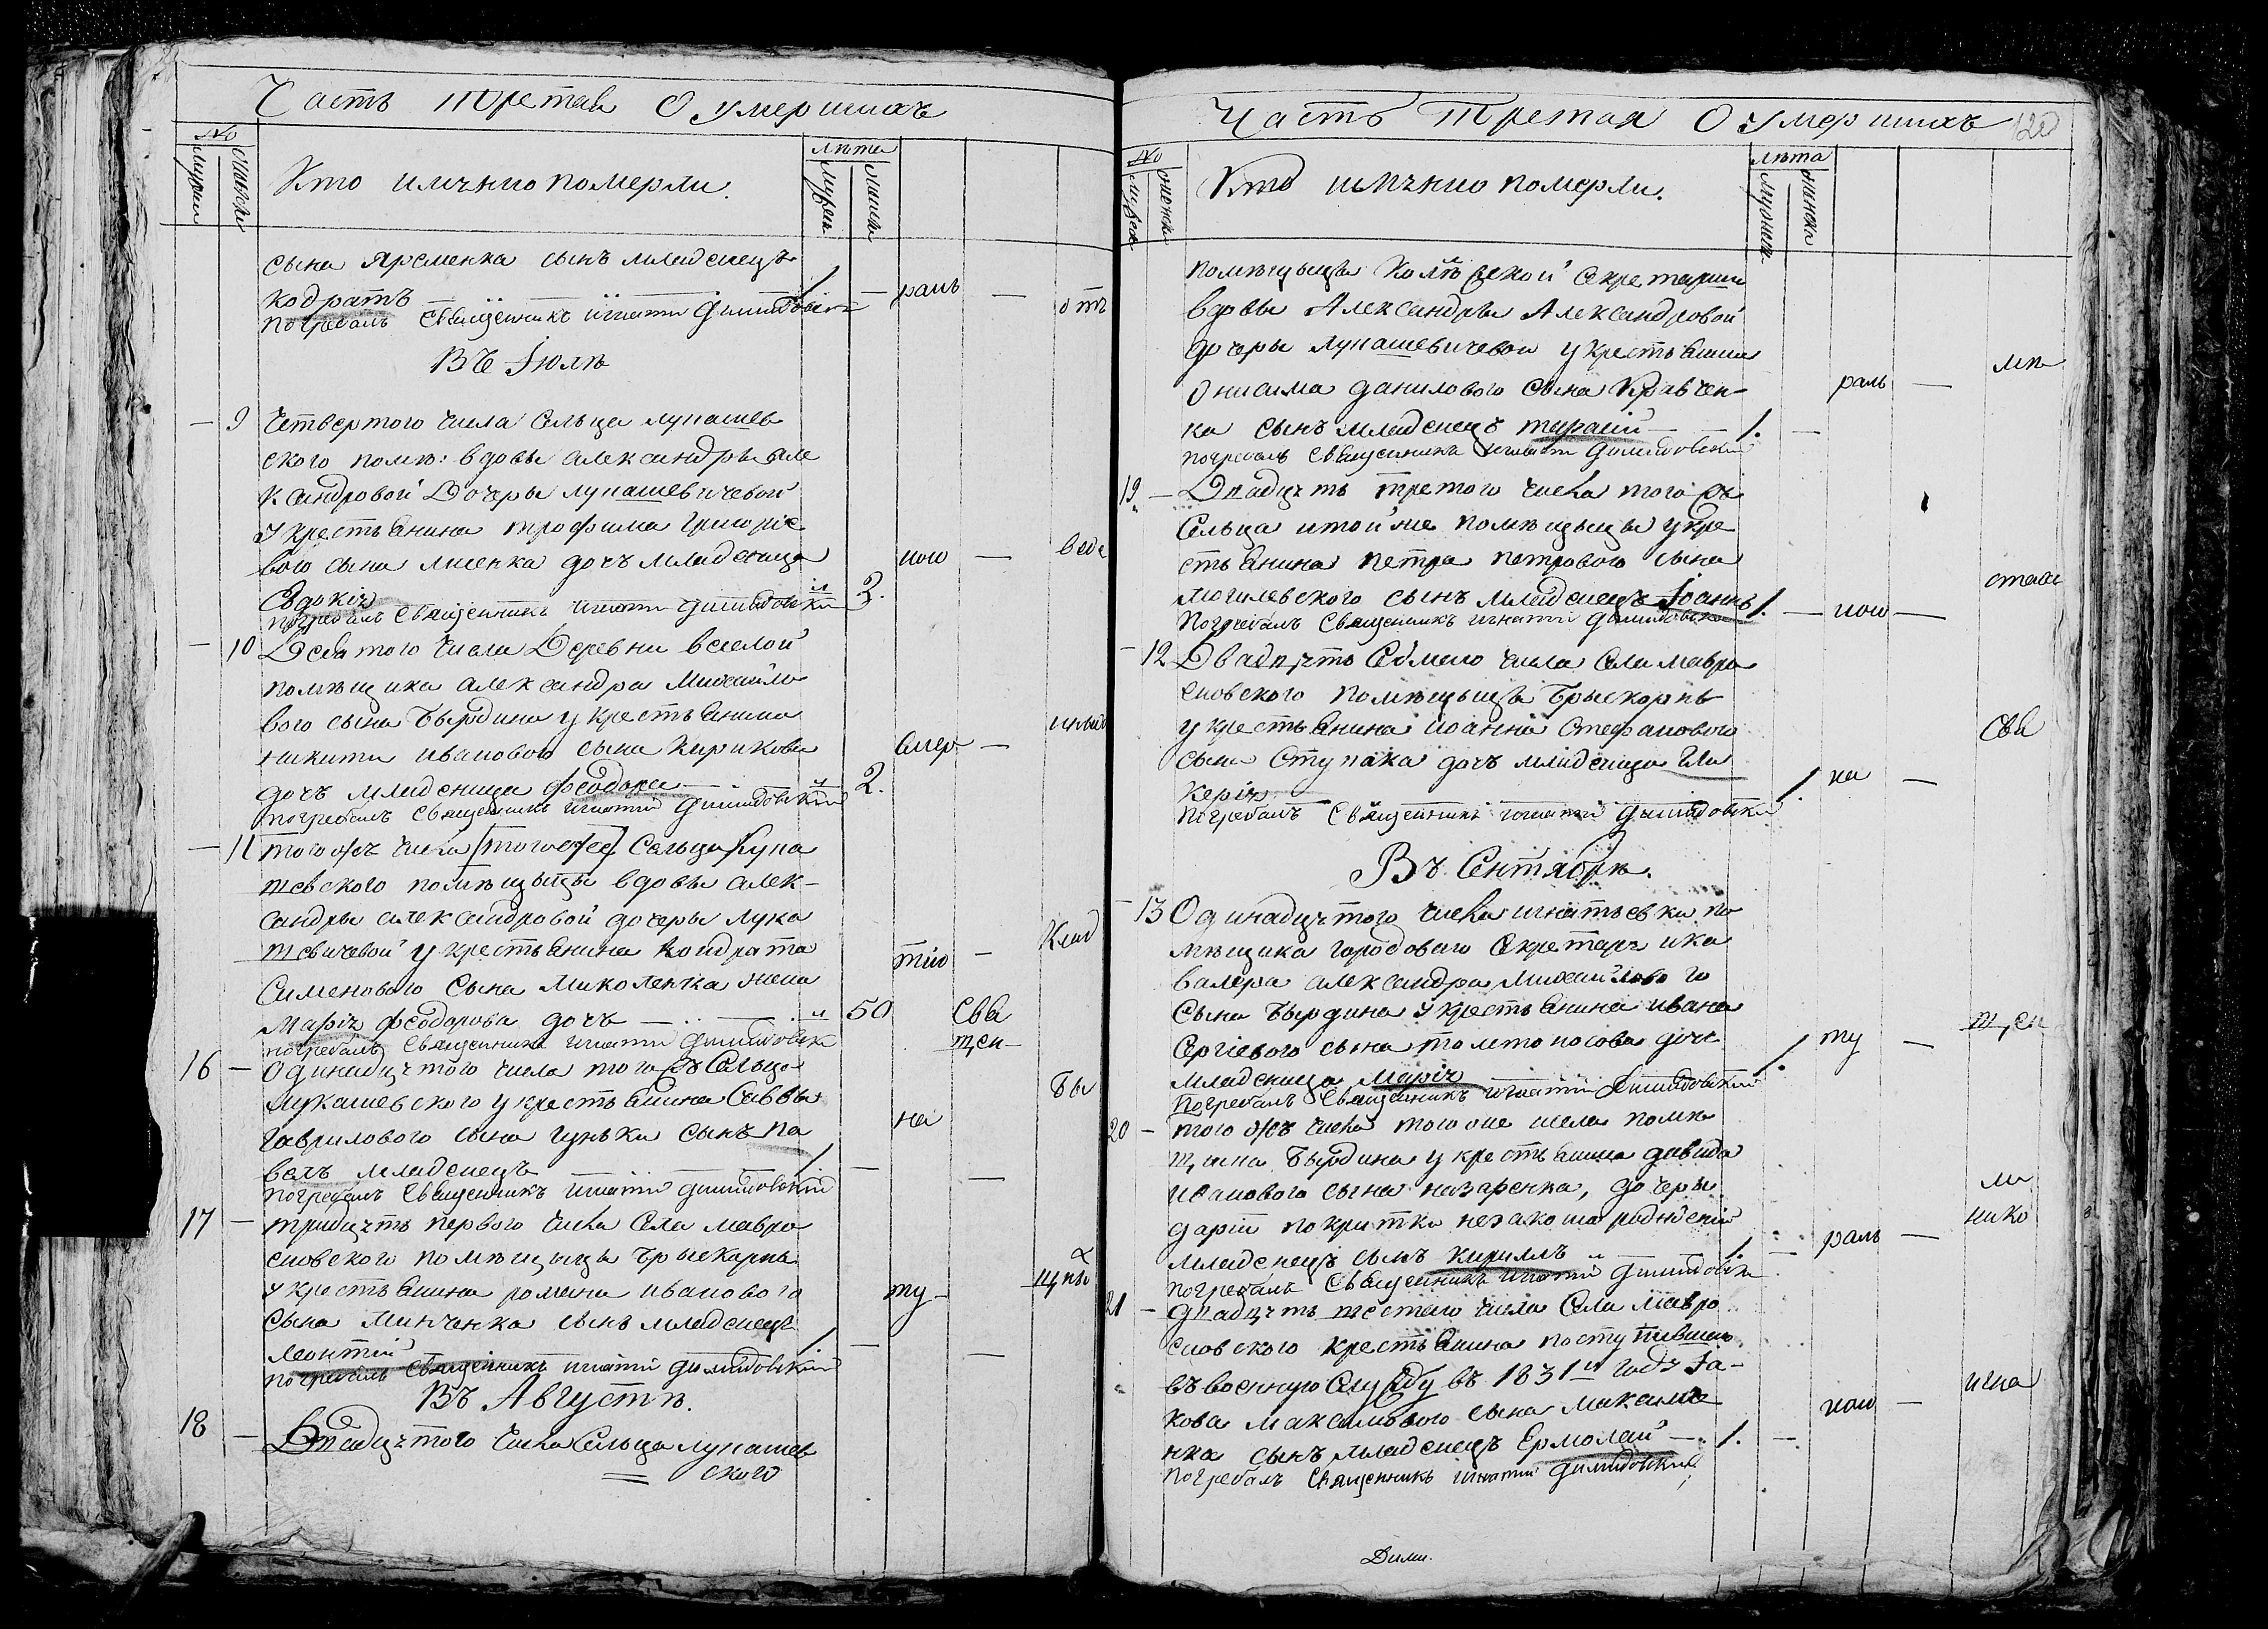 Часть третая О умершихъ
№
Лѣта
Кто имѧнно померли.
сына Яременка сынъ младенецъ
кодратъ — 1 — раль — отъ
погребалъ Священникъ игнатій Димидовскій
Въ Іюлѣ
— 9 Четвертого числа Сельца лукашев
ского помѣ: вдовы александры але
ксандровой Дочеры лукашевичевой
У крестьянина трофима григорїе
вого сына лисенка дочъ младеница
Евдокіѧ 3. ного —
погребалъ Священникъ игнатій Димидовскій
— 10 Девятого числа Деревни веселой
помѣщика александра Михайло
вого сына Бырдина у крестьянина
никиты иванового сына Кирикова
дочъ младеница Феѡдора 2.
погребалъ Священникъ игнатій Димидовскій
— 11 того ѡ҃жъ числа того же Сельца Лука
шевского помѣщыцы вдовы алек-
сандры александровой дочеры лука
шевичевой у крестьянина Кондрата
Сименового Сына Миколенка жена
Маріѧ феодорова дочъ — 50 Свѧ
погребалъ Священникъ игнатій Димидовскій щен
16 — Одинадцѧтого числа того жъ Сельца
Лукашевского у крестьянина Саввы
Гаврилового сына гунька сынъ па
велъ младенецъ 1 —
погребалъ Священникъ игнатій Димидовскій
17 — тридцѧть первого числа Села мавро
еновского помѣщыцы Брыскорнь
у крестьянина романа иванового
Сына Минченка сынъ младенецъ
леонтій 1 —
погребалъ Священникъ игнатій Димидовскій
Въ Августѣ.
18 — Двадцѧтого числа Сельца лукашев
ского
Часть Третая О Умершихъ
№
Лѣта
Кто имѧнно померли.
помѣщыцы Колѣжской Секретарши
вдовы Александры Александровой
дочеры лукашевичевой у крестьянина
Онисима данилового сына Кравчен-
ка сынъ младенецъ тарасій — 1. —
погребалъ Священникъ игнатій Димидовскій
19 — Двадцѧть третого числа того жъ
Сельца итой же помѣщыцы у кре
стьянина петра петрового сына
могилевского сынъ младенецъ Іоаннъ 1. — ного —
погребалъ Священникъ игнатій Димидовскій
— 12 Двадцѧть Седмого числа Села мавро
еновского помѣщыцы Брыскорнь
у крестьянина иоанна Стефанового
сына Ступака дочъ младеница Гли
керіѧ 1. на —
погребалъ Священникъ игнатій Димидовскій
Въ Сентябрѣ.
— 13 Одинадцѧтого числа игнатьевки по
мѣщика городового Секретарѧ ика
валера александра Михайлового
Сына Бырдина у крестьянина ивана
Сергіевого сына толстоносова дочь
младеница Маріѧ 1. ту — щен
погребалъ Священникъ игнатій Димидовскій
20 — того ѡ҃жъ числа того же села помѣ
щика Бырдина у крестьянина давида
иванового сына назаренка, дочеры
даріи покритки незаконорожденій
младенецъ сынъ кириллъ 1. — раль — нико
погребалъ Священникъ игнатій Димидовскій
21 — Двадцѧть шестого числа Села мавро
еновского крестьянина поступившого
въ военную Службу въ 1831м годѣ Іа-
кова максимового сына максиме
нка сынъ младенецъ Ермолай — 1. — ного — игна
погребалъ Священникъ игнатій Димидовскій
Дими.